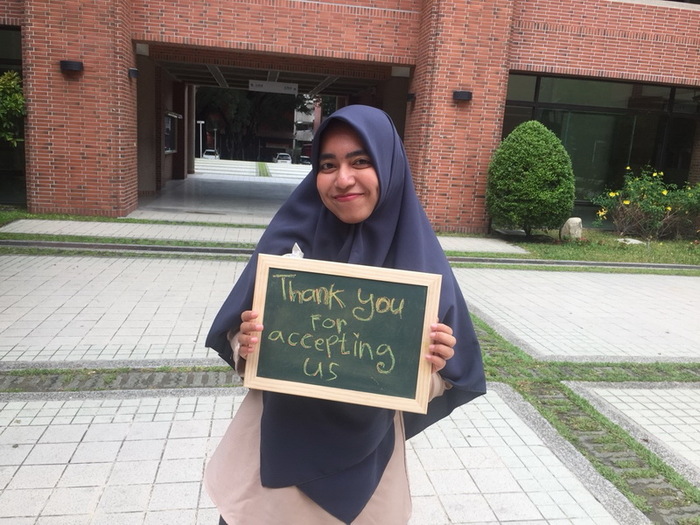 Thank you
For
accepting
us